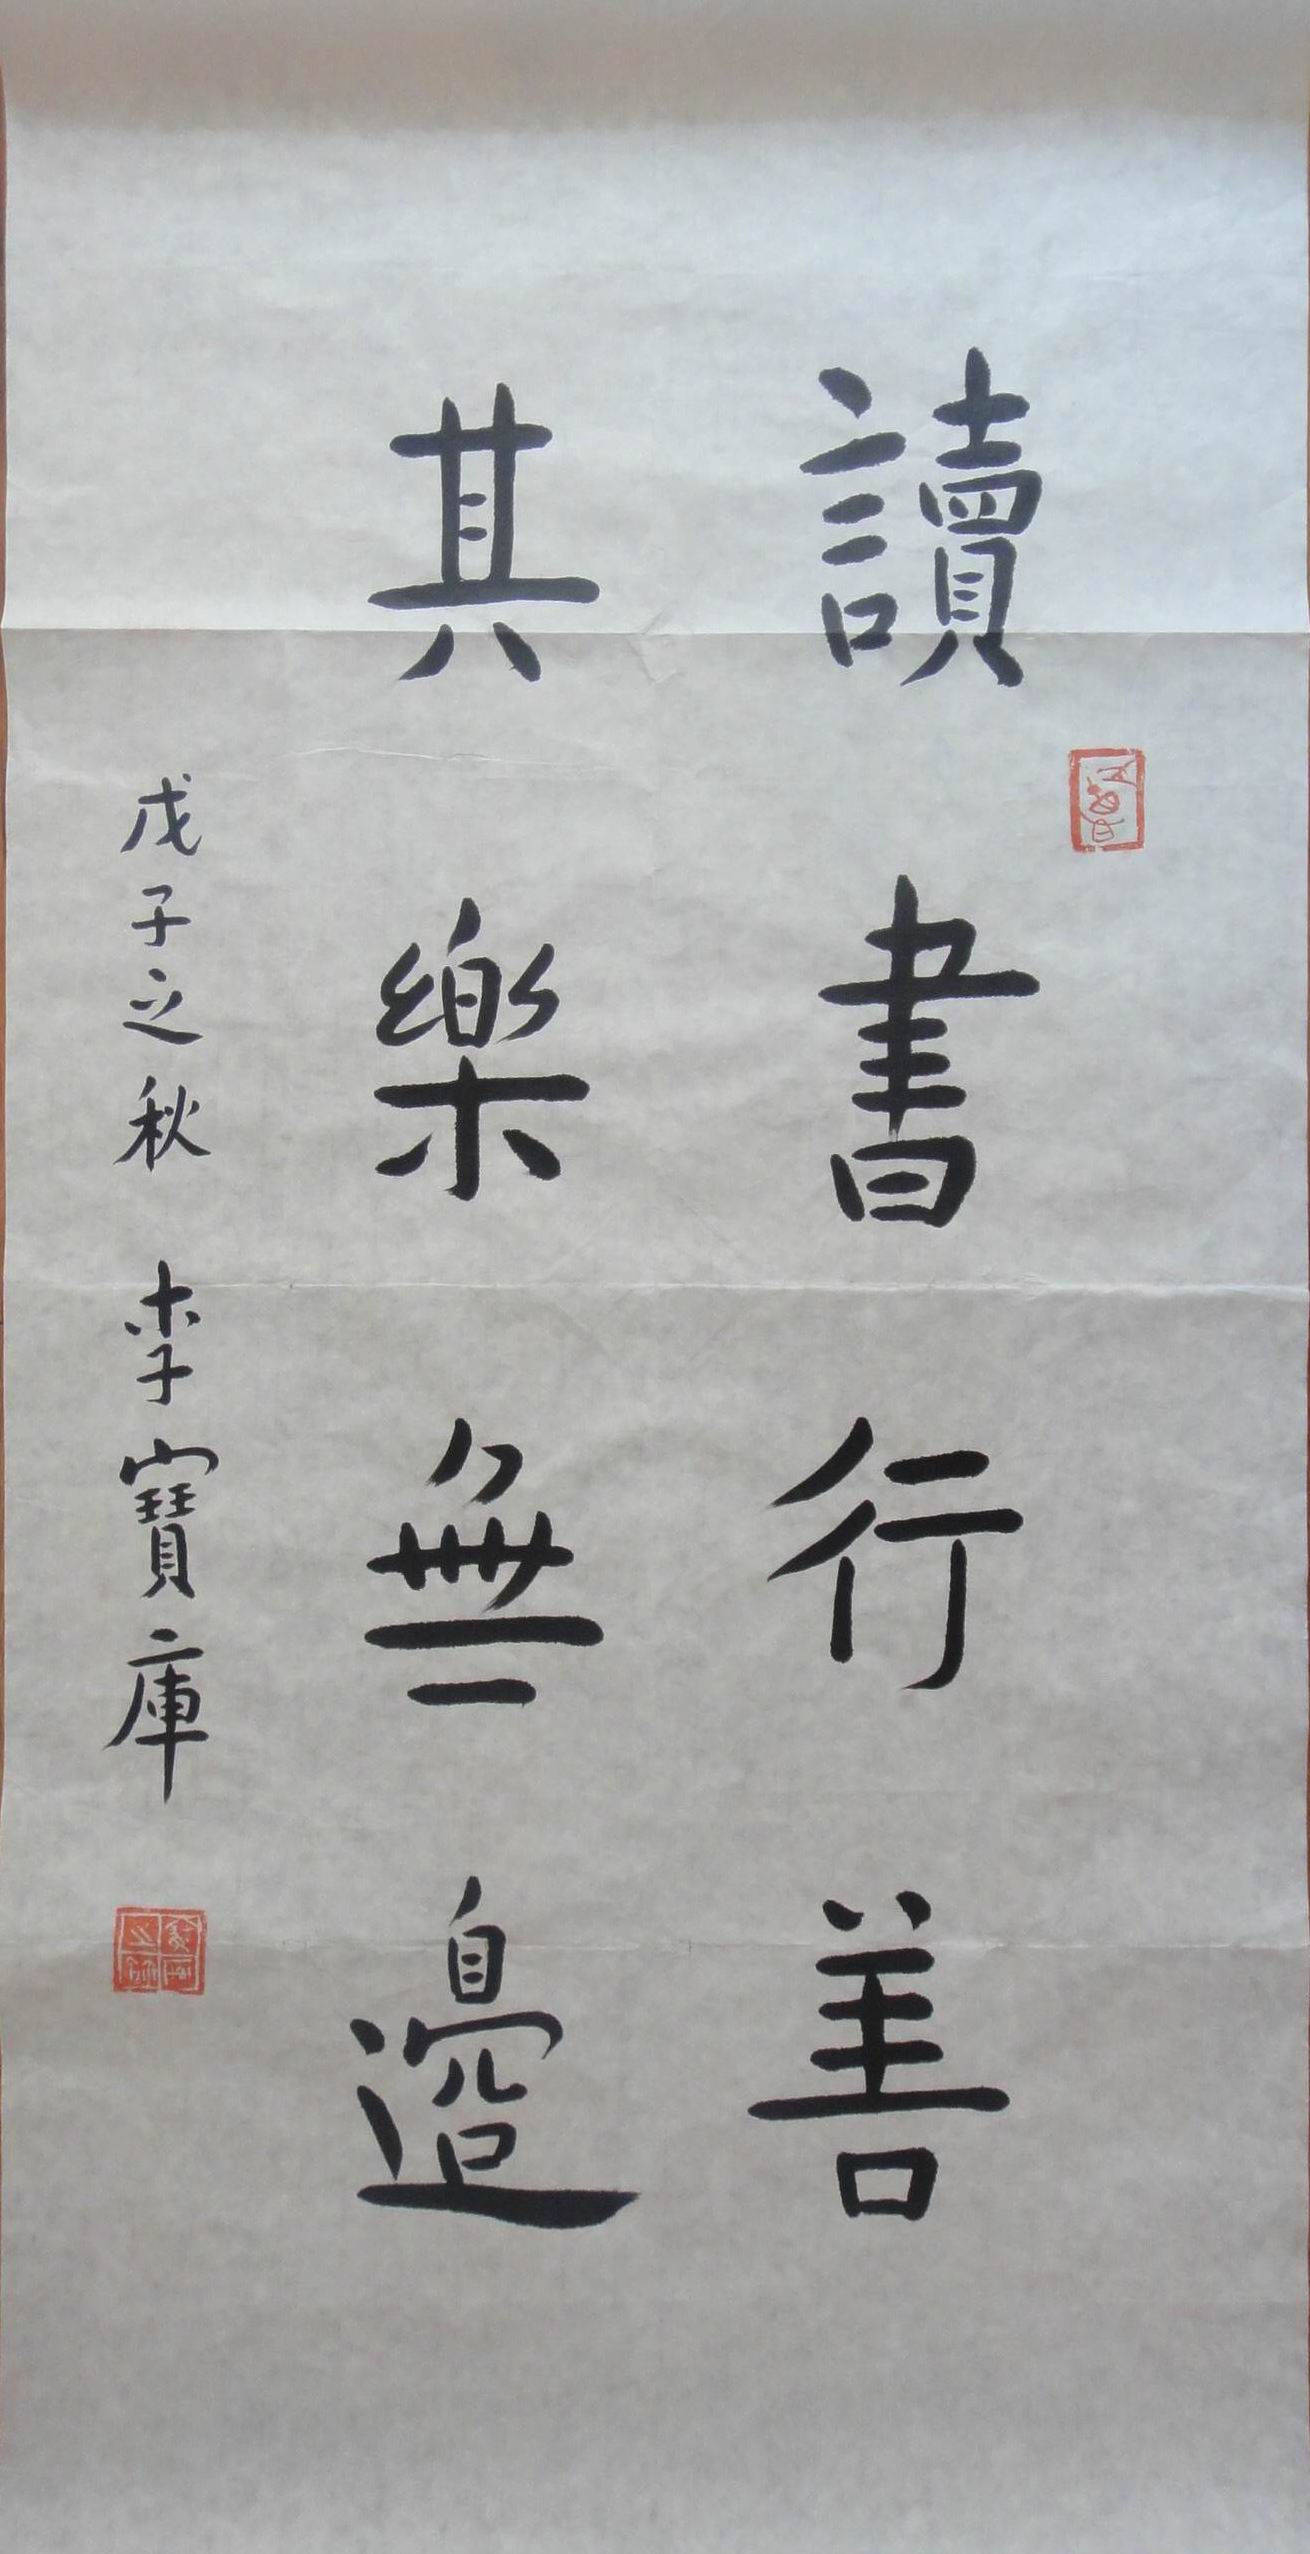 讀書行善
其樂無邊
戊子之秋 李寶庫